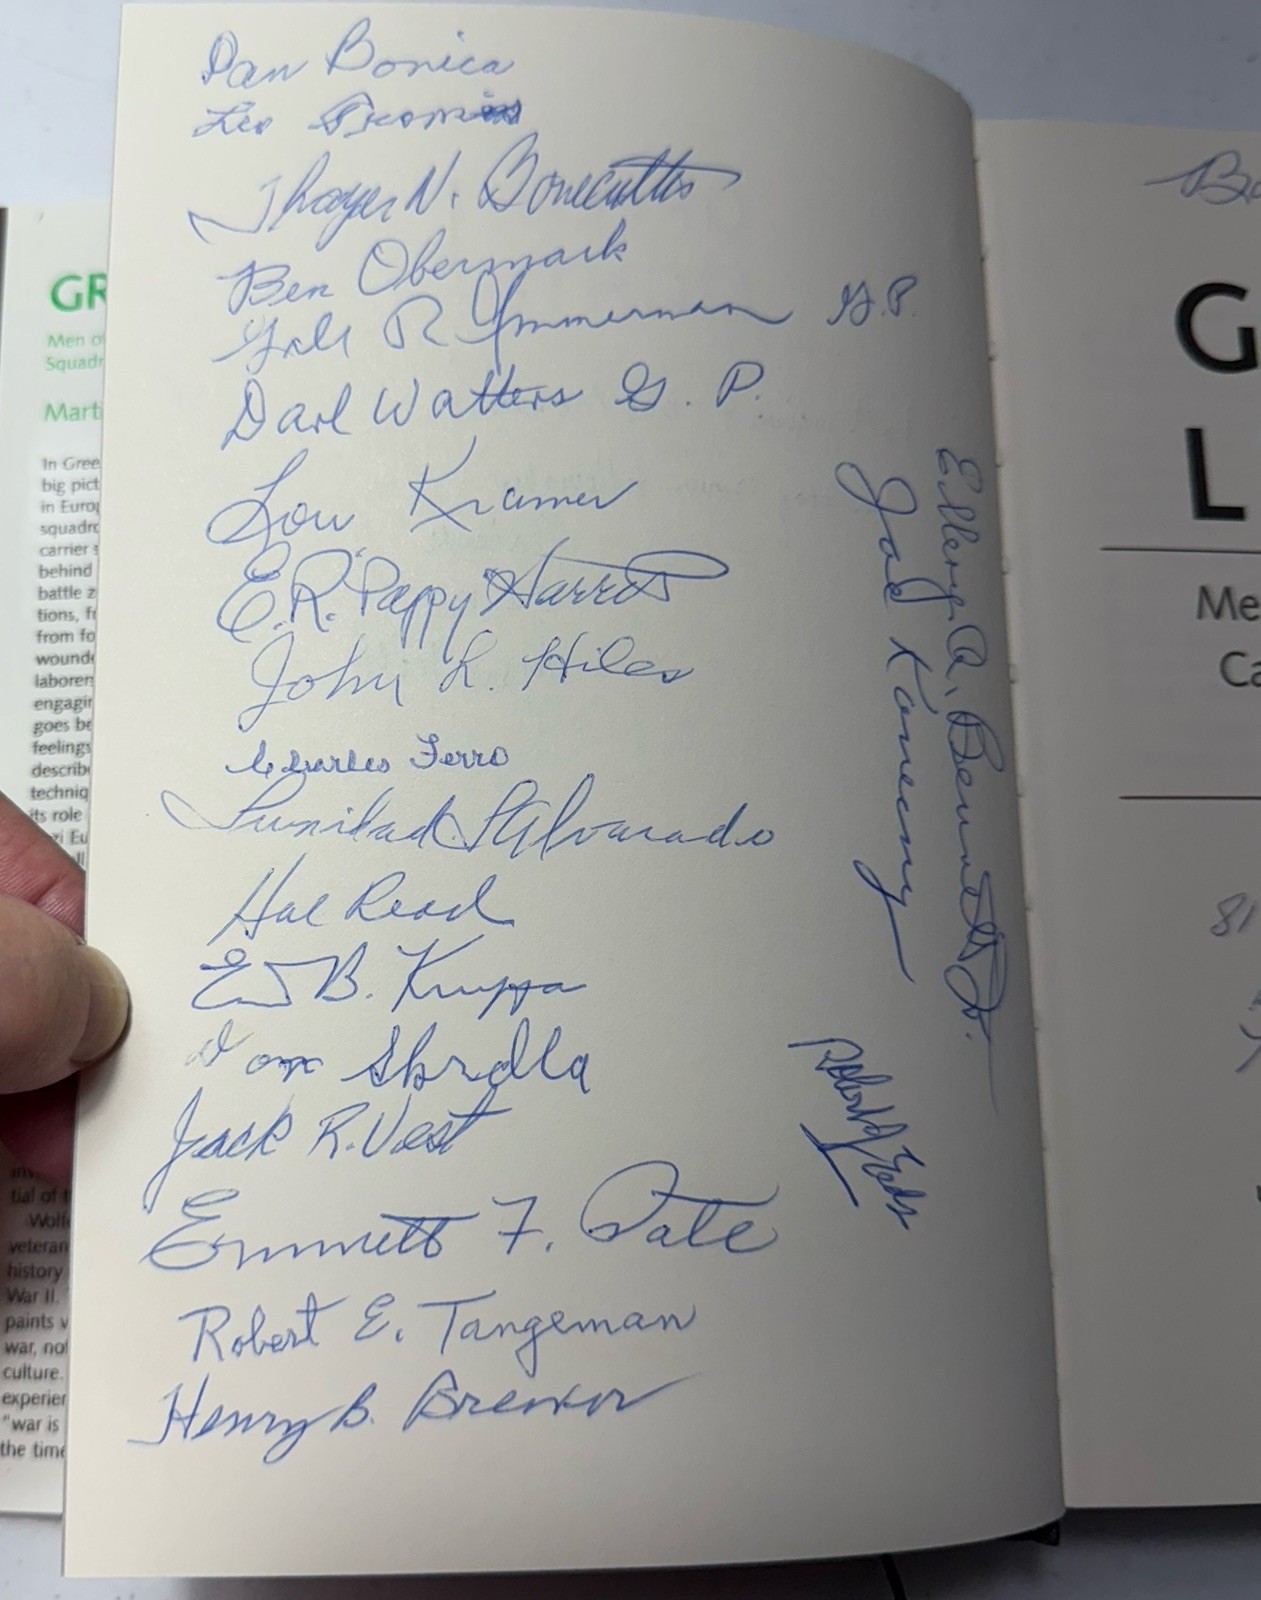 Dan Bonica
Leo
Thayer N. Bonecutter
Ben Obermark
Gale R Ammerman G.P.
Darl Watters G. P.
Lou Kramer
E.R. "Pappy" Harris
John L. Hiles
Charles Ferro
Trinidad Alvarado
Hal Read
Ed B. Kruppa
Don Skrdla
Jack R. Vest
Emmett F. Pate
Robert E. Tangeman
Henry B. Brewer
Ellery A. Bennett Jr.
Jack Kanesny
Robert
GR
Men
Squadr
Mart
In Gree
big pict
in Europ
squadro
carrier s
behind
battle z
tions, fr
from fo
wounde
laborer
engagin
goes be
feelings
describ
techniq
its role
zi Eu
tial of t
Wolf
veteran
history
War II.
paints v
war, not
culture.
experier
"war is
the time
G
L
Me
Ca
81